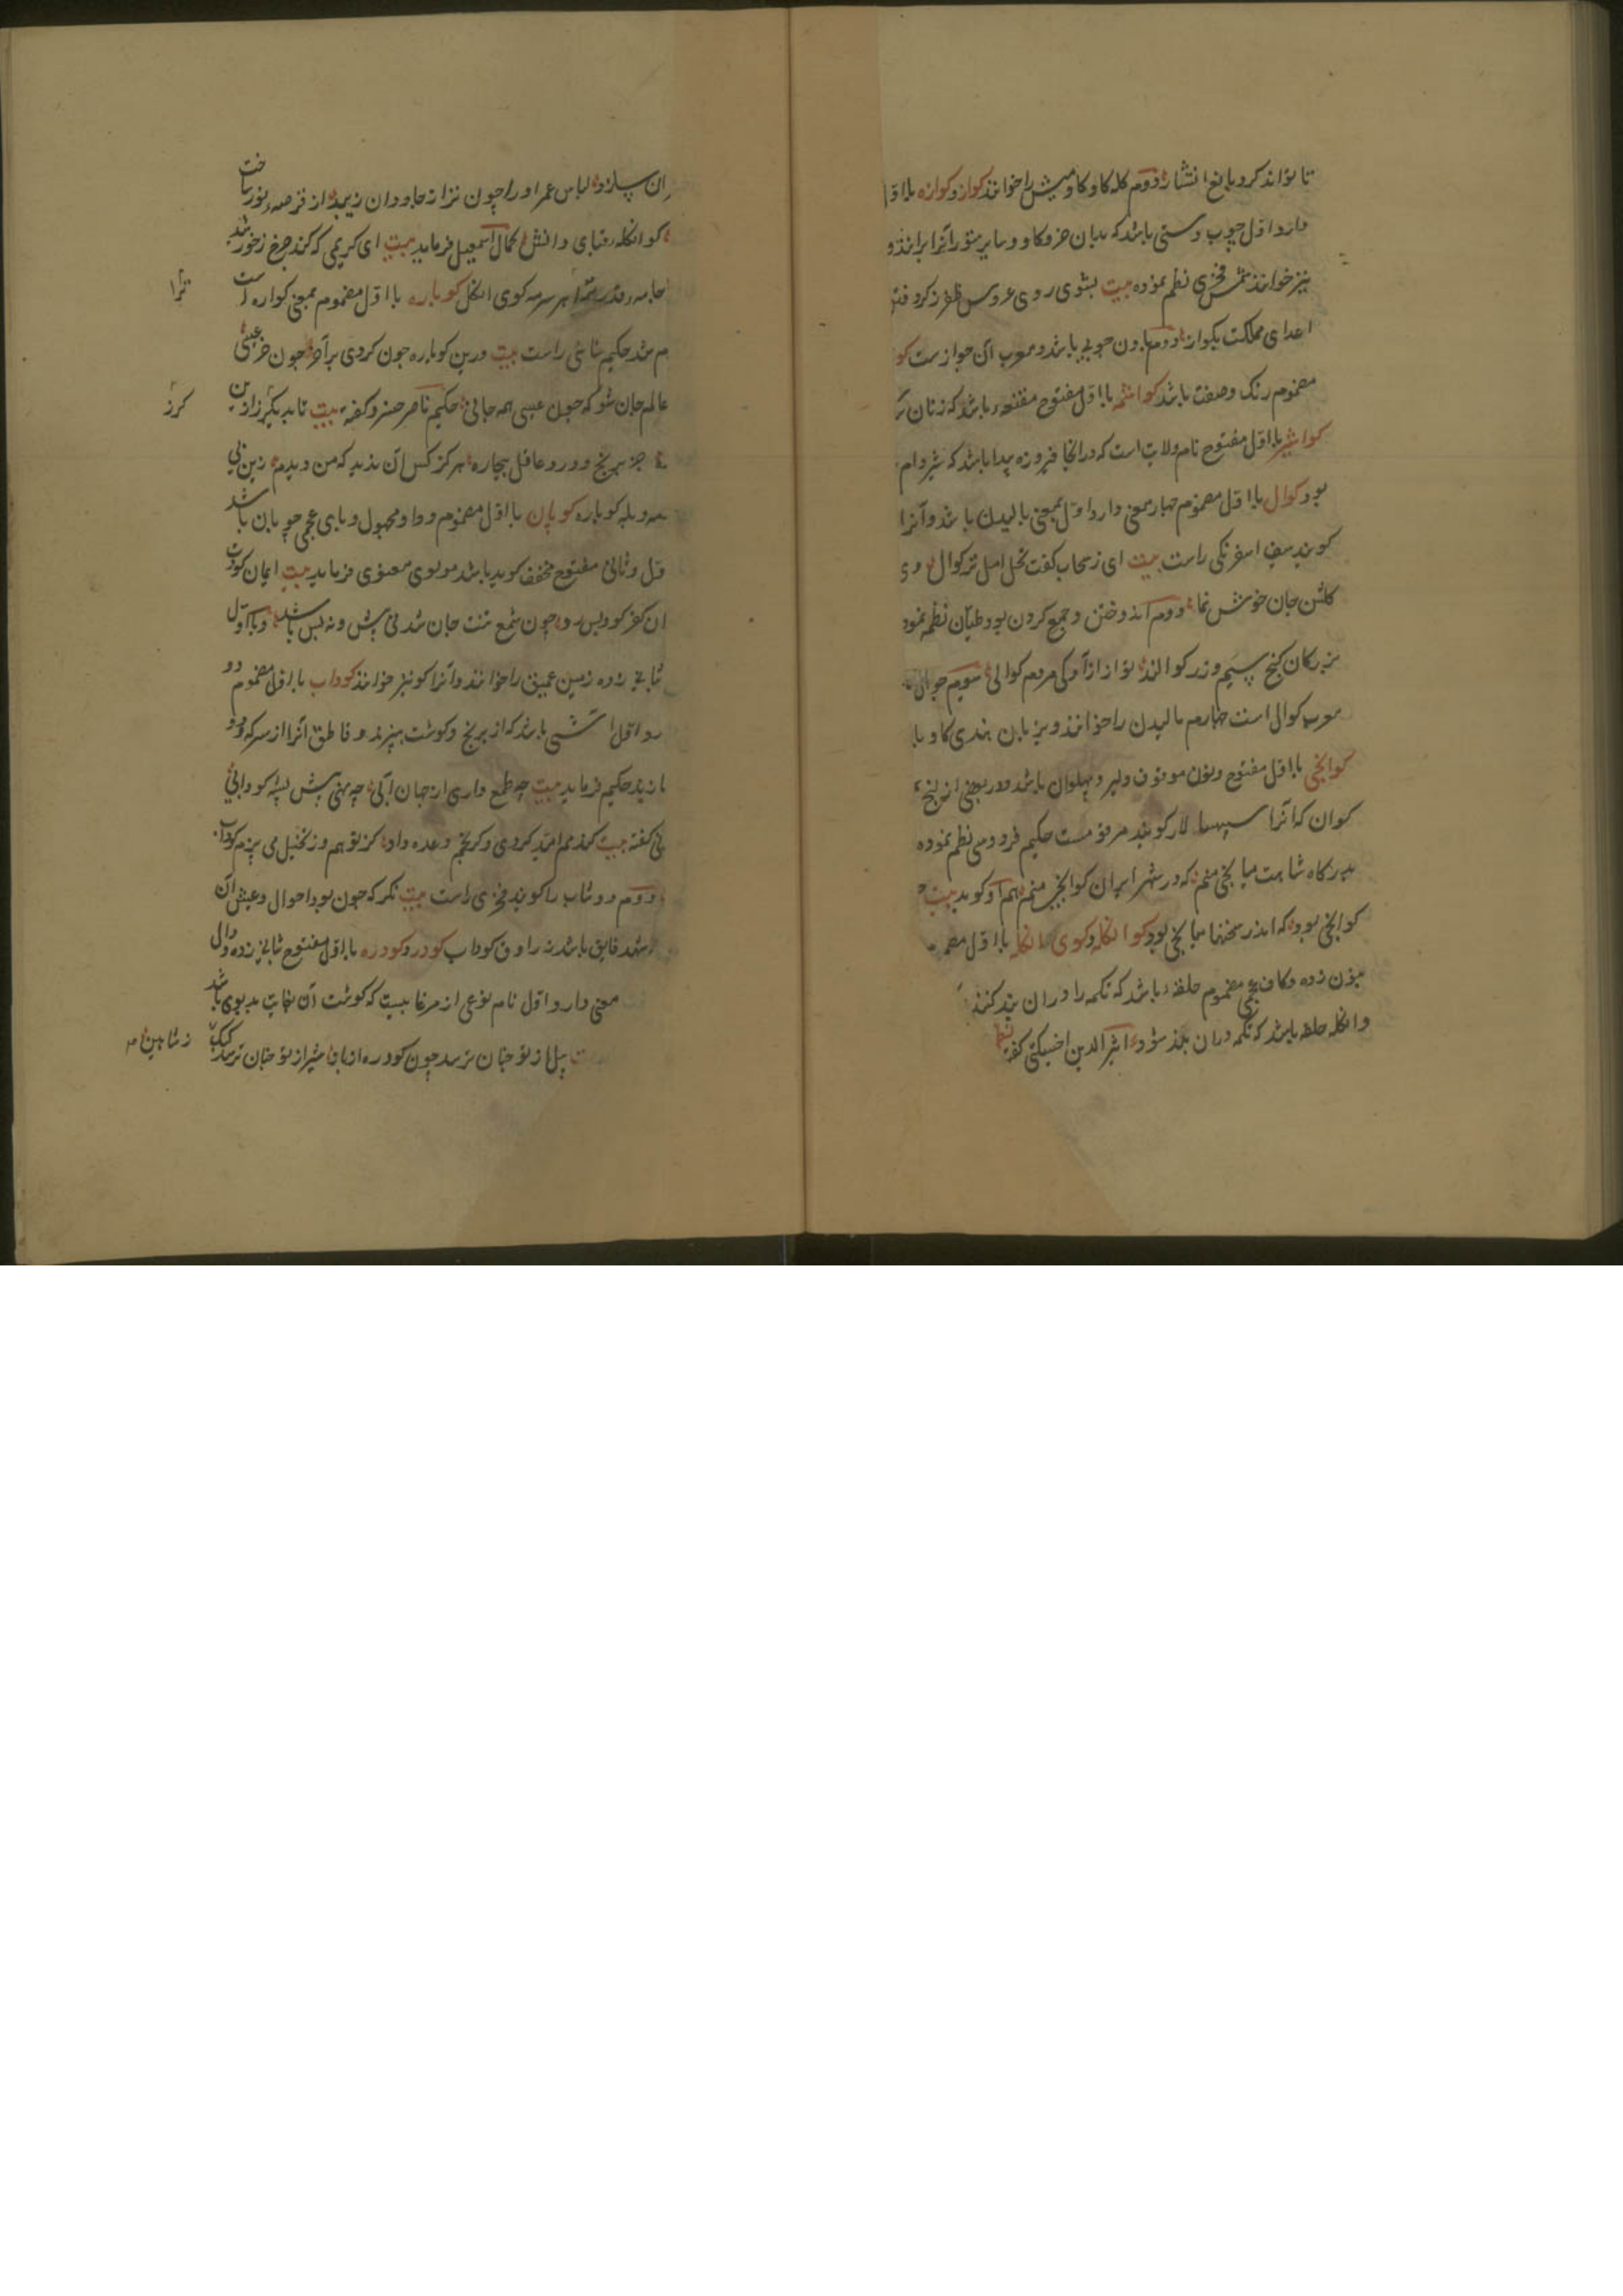 تا تواند کرد بانع انتشار دوم کله کاو و کاومیش را خوانند کواز و کوازه با اول
دارد اول چوب دستی باشد که بدان خر و کاو و سایر ستور را برانند و
نیز خوانند شمس فخری نظم نموده بیت بشوی روی عروس ظفر ز کرد فتن
اعدای مملکت بکواز دوم هاون چوبی باشد و معرب آن جواز ست
مضموم رنک و صفت باشد کواشمه با اول مفتوح مقنعه باشد که زنان
کواشیر با اول مفتوح نام ولایت است که در انجا فیروزه پیدا باشد که شیروام
بود کوال با اول مضموم چهار معنی دارد اول بمعنی بالیدن باشد و آنرا
کویند سیف اسفرنکی راست بیت ای ز سحاب کفت نخل امل تر کوال وی
کلشن جان خوش نما دوم اندوختن و جمع کردن بود طیان نظم نمود
بزرکان کنج سیم و زر کوالند تو از آزادکی مردم کوالی سویم جوال
معرب کوال است چهارم مالیدن را خوانند و بزبان هندی کاو با
کوانجی با اول مفتوح و نون موقوف دلیر و پهلوان باشد و در بعضی از نسخ
کوان که آنرا سپهسالار کویند مرقوم ست حکیم فردوسی نظم نموده
بدرکاه شاهت میانجی منم که در شهر ایران کوانجی منم هم او کوید بیت
کوانجی بود که اندر سخنها میانجی بود کوانکله و کوی انکله با اول مضموم
بنون زده و کاف عجمی مضموم حلقه باشد که تکمه را در ان بند کنند
و انکله حلقه باشد که تکمه در ان بند شود اثیر الدین اخسیکتی کفته نظم
ان سپارد لباس عمر او را چون نزار جاودان زیبد از قرصه نور ساخت
کوانکله قبای دانش کمال اسمعیل فرماید بیت ای کریمی که کند چرخ ز خورشید
جامه قدر ترا هر سر مه کوی انکل کوباره با اول مضموم بمعنی کواره است
ترا
م شد حکیم سنائی راست بیت درین کوباره چون کردی بر آخر چون خر عیسی
عالم جان شو که چون عیسی همه جانی حکیم ناصر خسرو کفته بیت تا بدیکر زاد زین
کرز
جز برنج و درد عاقل بیچاره هرکز کس آن ندید که من دیدم زین بی
رمه و یله کوباره کوپان با اول مضموم و واو مجهول و بای عجمی چوپان باشد
قل و ثانی مفتوح مخفف کوید باشد مولوی معنوی فرماید بیت ایمان کودت
ان کفر کود پس رو چون شمع تنت جان شد نی پیش و نه پس باشد و با اول
ثانی زده زمین عمیق را خوانند و آنرا کو نیز خوانند کوداب با اول مضموم دو
رد اول آشی باشد که از برنج و کوشت بپزند و قاطق آنرا از سرکه و
ازند حکیم فرماید بیت چه طمع داری از جهان آبی چه نهی پیش پشه کودابی
نی کفته بیت کندمم امید کردی و کرنجم وعده داد کز تو هم وز نخیل می پزم کوداب
دوم دوشاب را کویند فخری راست بیت نکر که چون بود احوال و عیش آن
شهد فایق باشد نه راوق کوداب کودر و کودره با اول مفتوح ثانی زده و دال
معنی دارد اول نام نوعی از مرغابیست که کوشت آن بغایت بدبوی باشد
پیل از تو چنان ترسد چون کودره از باز شیر از تو چنان ترسد کبک
ز شاهینا